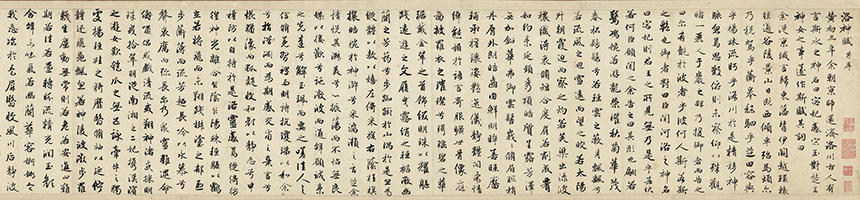 洛神賦 并序
黃初三年余朝京師還濟洛川古人有
言斯水之神名曰宓妃感宋玉對楚王
神女之事遂作斯賦其詞曰
余從京域言歸東藩背伊闕越轘轅
經通谷陵景山日既西傾車殆馬煩爾
乃稅駕乎蘅皋秣駟乎芝田容與
乎楊林流眄乎洛川於是精移神
駭忽焉思散俯則未察仰以殊觀
睹一麗人于巖之畔乃援御者而告之
曰爾有覿於彼者乎彼何人斯若斯
之豔也御者對曰臣聞河洛之神名
曰宓妃則君王之所見無乃是乎其狀
若何臣願聞之余告之曰其形也翩若
驚鴻婉若游龍榮曜秋菊華茂
春松髣髴兮若輕雲之蔽月飄飖兮
若流風之迴雪遠而望之皎若太陽
升朝霞迫而察之灼若芙蕖出淥波
穠纖得衷脩短合度肩若削成腰
如約素延頸秀項皓質呈露芳澤
無加鉛華弗御雲髻峩峩脩眉聯娟
丹脣外朗皓齒內鮮明眸善睞靨
輔承權瓌姿豔逸儀靜體閑柔情
綽態媚於語言奇服曠世骨像應
圖披羅衣之璀璨兮珥瑤碧之華
琚戴金翠之首飾綴明珠以耀軀
踐遠遊之文履曳霧綃之輕裾微幽
蘭之芳藹兮步踟躕於山隅於是忽焉
縱體以遨以嬉左倚采旄右蔭桂旗
攘皓腕於神滸兮采湍瀨之玄芝余
情悅其淑美兮心振蕩而不怡無良
媒以接歡兮託微波而通辭願誠素
之先達兮解玉珮而要之嗟佳人之
信脩羌習禮而明詩抗瓊珶以和余
兮指潛淵而為期感交甫之棄言兮
悵猶豫而狐疑收和顏而靜志兮申
禮防以自持於是洛靈感焉徙倚傍
徨神光離合乍陰乍陽竦輕軀以鶴
立若將飛而未翔踐椒塗之郁烈
步蘅薄而流芳超長吟以永慕兮
聲哀厲而彌長爾乃衆靈雜遝命
儔嘯侶或戲清流或翔神渚或采明
珠或拾翠羽從南湘之二妃攜漢濱
之遊女歎匏瓜之無匹詠牽牛之獨
處揚輕袿之猗靡翳脩袖以延佇
體迅飛鳧飄忽若神陵波微步羅
韈生塵動無常則若危若安進止難
期若往若還轉眄流精光潤玉顏
含辭未吐氣若幽蘭華容婀娜令
我忘飡於是屏翳收風川后靜波